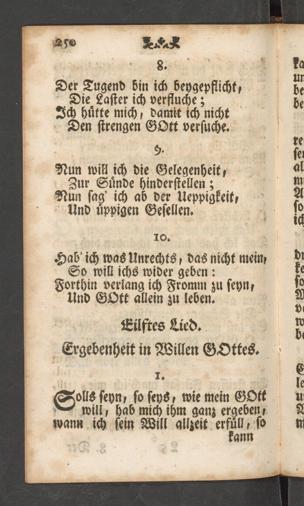 250
8.
Der Tugend bin ich beygepflicht,
Die Laster ich verfluche;
Ich hütte mich, damit ich nicht
Den strengen GOtt versuche.
9.
Nun will ich die Gelegenheit,
Zur Sünde hinderstellen;
Nun sag' ich ab der Ueppigkeit,
Und üppigen Gesellen.
10.
Hab' ich was Unrechts, das nicht mein,
So will ichs wider geben:
Forthin verlang ich Fromm zu seyn,
Und GOtt allein zu leben.
Eilftes Lied.
Ergebenheit in Willen GOttes.
1.
Solls seyn, so seys, wie mein GOtt
will, hab mich ihm ganz ergeben,
wann ich sein Will allzeit erfüll, so
kann